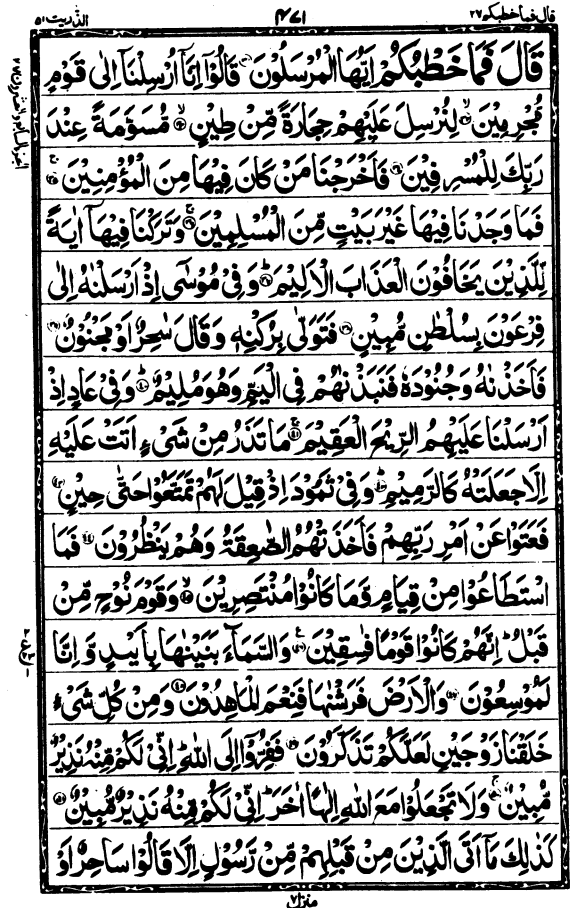 قال فما خطبكم ٢٧ ٤٧١ الذريت ٥١
قَالَ فَمَا خَطْبُكُمْ اَيُّهَا الْمُرْسَلُوْنَ ۝٣١ قَالُوْۤا اِنَّاۤ اُرْسِلْنَاۤ اِلٰى قَوْمٍ
مُّجْرِمِيْنَ ۝٣٢ لِنُرْسِلَ عَلَيْهِمْ حِجَارَةً مِّنْ طِيْنٍ ۝٣٣ مُّسَوَّمَةً عِنْدَ
رَبِّكَ لِلْمُسْرِفِيْنَ ۝٣٤ فَاَخْرَجْنَا مَنْ كَانَ فِيْهَا مِنَ الْمُؤْمِنِيْنَ ۝٣٥
فَمَا وَجَدْنَا فِيْهَا غَيْرَ بَيْتٍ مِّنَ الْمُسْلِمِيْنَ ۝٣٦ وَتَرَكْنَا فِيْهَاۤ اٰيَةً
لِّلَّذِيْنَ يَخَافُوْنَ الْعَذَابَ الْاَلِيْمَ ۝٣٧ وَفِيْ مُوْسٰۤى اِذْ اَرْسَلْنٰهُ اِلٰى
فِرْعَوْنَ بِسُلْطٰنٍ مُّبِيْنٍ ۝٣٨ فَتَوَلّٰى بِرُكْنِهٖ وَقَالَ سٰحِرٌ اَوْ مَجْنُوْنٌ ۝٣٩
فَاَخَذْنٰهُ وَجُنُوْدَهٗ فَنَبَذْنٰهُمْ فِي الْيَمِّ وَهُوَ مُلِيْمٌ ۝٤٠ وَفِيْ عَادٍ اِذْ
اَرْسَلْنَا عَلَيْهِمُ الرِّيْحَ الْعَقِيْمَ ۝٤١ مَا تَذَرُ مِنْ شَيْءٍ اَتَتْ عَلَيْهِ
اِلَّا جَعَلَتْهُ كَالرَّمِيْمِ ۝٤٢ وَفِيْ ثَمُوْدَ اِذْ قِيْلَ لَهُمْ تَمَتَّعُوْا حَتّٰى حِيْنٍ ۝٤٣
فَعَتَوْا عَنْ اَمْرِ رَبِّهِمْ فَاَخَذَتْهُمُ الصّٰعِقَةُ وَهُمْ يَنْظُرُوْنَ ۝٤٤ فَمَا
اسْتَطَاعُوْا مِنْ قِيَامٍ وَّمَا كَانُوْا مُنْتَصِرِيْنَ ۝٤٥ وَقَوْمَ نُوْحٍ مِّنْ
قَبْلُ ؕ اِنَّهُمْ كَانُوْا قَوْمًا فٰسِقِيْنَ ۝٤٦ وَالسَّمَآءَ بَنَيْنٰهَا بِاَيْىدٍ وَّاِنَّا
لَمُوْسِعُوْنَ ۝٤٧ وَالْاَرْضَ فَرَشْنٰهَا فَنِعْمَ الْمٰهِدُوْنَ ۝٤٨ وَمِنْ كُلِّ شَيْءٍ
خَلَقْنَا زَوْجَيْنِ لَعَلَّكُمْ تَذَكَّرُوْنَ ۝٤٩ فَفِرُّوْۤا اِلَى اللّٰهِ ؕ اِنِّيْ لَكُمْ مِّنْهُ نَذِيْرٌ
مُّبِيْنٌ ۝٥٠ وَلَا تَجْعَلُوْا مَعَ اللّٰهِ اِلٰهًا اٰخَرَ ؕ اِنِّيْ لَكُمْ مِّنْهُ نَذِيْرٌ مُّبِيْنٌ ۝٥١
كَذٰلِكَ مَاۤ اَتَى الَّذِيْنَ مِنْ قَبْلِهِمْ مِّنْ رَّسُوْلٍ اِلَّا قَالُوْا سَاحِرٌ اَوْ
منزل ٧